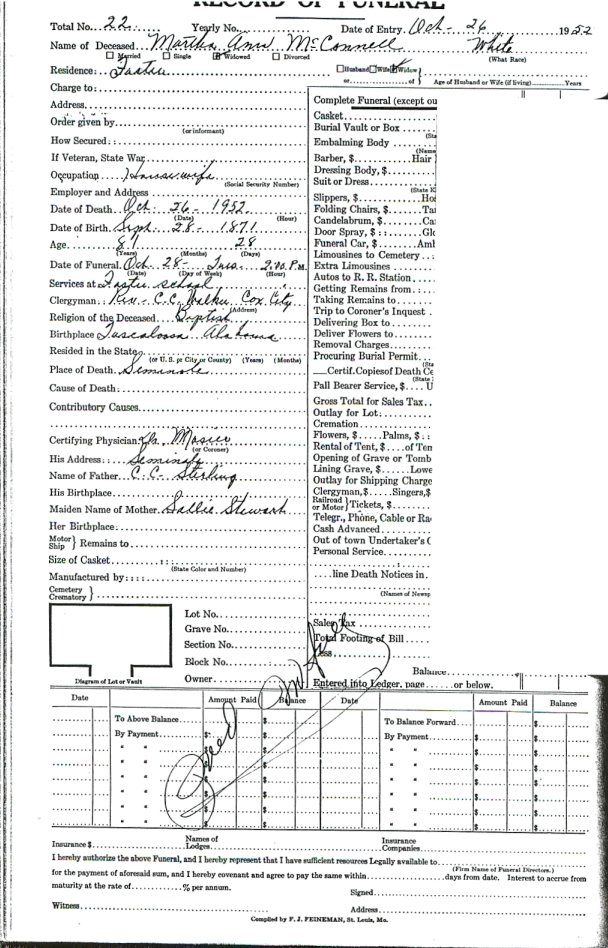 RECORD OF FUNERAL
Total No. 22 Yearly No. Date of Entry Oct- 26 1952
Name of Deceased Martha Ann McConnell White
Married Single Widowed Divorced (What Race)
Residence: Husband Wife Widow
or of Age of Husband or Wife (if living) Years
Charge to:
Address
Order given by
(or informant)
How Secured:
If Veteran, State War
Occupation Housewife
(Social Security Number)
Employer and Address
Date of Death Oct. 26- 1952
(Date) (Hour)
Date of Birth Sept. 28- 1871
Age 81 28
(Years) (Months) (Days)
Date of Funeral Oct. 28- Tues. 2:00 P.M.
(Date) (Day of Week) (Hour)
Services at school
Clergyman: Rev- C.C. Cox City
(Address)
Religion of the Deceased Baptist
Birthplace Tuscaloosa Alabama
Resided in the State
(or U.S. or City or County) (Years) (Months)
Place of Death Seminole
Cause of Death:
Contributory Causes
Certifying Physician Mosier
(or Coroner)
His Address: Seminole
Name of Father C.C- Sterling
His Birthplace
Maiden Name of Mother Sallie Stewart
Her Birthplace:
Motor Ship Remains to
Size of Casket
(State Color and Number)
Manufactured by:
Cemetery
Crematory
Lot No.
Grave No.
Section No.
Block No.
Owner
Diagram of Lot or Vault
Complete Funeral (except ou
Casket
Burial Vault or Box
(Sta
Embalming Body
(Name
Barber, $ Hair
Dressing Body, $
Suit or Dress
(State K
Slippers, $ Hos
Folding Chairs, $ Ta
Candelabrum, $ Ca
Door Spray, $ Glo
Funeral Car, $ Aml
Limousines to Cemetery
Extra Limousines
Autos to R. R. Station
Getting Remains from
Taking Remains to
Trip to Coroner's Inquest
Delivering Box to
Deliver Flowers to
Removal Charges
Procuring Burial Permit
(Sta
Certif. Copies of Death Ce
(State
Pall Bearer Service, $ U
Gross Total for Sales Tax
Outlay for Lot:
Cremation
Flowers, $ Palms, $
Rental of Tent, $ of Ten
Opening of Grave or Tomb
Lining Grave, $ Lowe
Outlay for Shipping Charge
Clergyman, $ Singers, $
Railroad or Motor Tickets, $
Telegr., Phone, Cable or Ra
Cash Advanced
Out of town Undertaker's C
Personal Service
line Death Notices in
(Names of Newsp
Sales Tax
Total Footing of Bill
Less
Balance
Entered into Ledger, page or below.
Date Amount Paid Balance Date Amount Paid Balance
To Above Balance $ To Balance Forward $
By Payment $ $ By Payment $ $
" " $ $ " " $ $
" " $ $ " " $ $
" " $ $ " " $ $
" " $ $ " " $ $
" " $ $ " " $ $
Insurance $ Names of Lodges Insurance Companies
I hereby authorize the above Funeral, and I hereby represent that I have sufficient resources Legally available to
(Firm Name of Funeral Directors.)
for the payment of aforesaid sum, and I hereby covenant and agree to pay the same within days from date. Interest to accrue from
maturity at the rate of % per annum. Signed
Witness Address
Compiled by F. J. FEINEMAN, St. Louis, Mo.